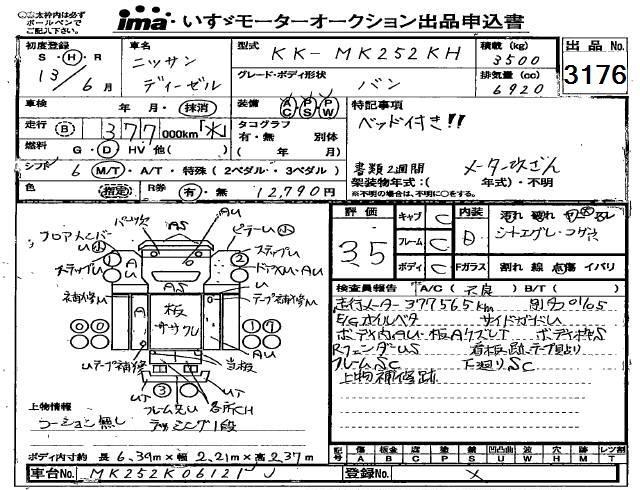 ◎○太枠内は必ず
ボールペンで
ご記入下さい。
ima・いすゞモーターオークション出品申込書
初度登録 S・H・R 13年 6月
車名 ニッサン ディーゼル
型式 KK-MK252KH
積載(kg) 3500
グレード・ボディ形状 バン
排気量(cc) 6920
出品No. 3176
車検 年 月・抹消
装備 AC PS PW
特記事項
ベッド付き!!
走行 B 377 000km
タコグラフ 有・無 別体 ( 年 月)
燃料 G・D HV 他( )
シフト 6 M/T・A/T・特殊(2ペダル・3ペダル)
書類2週間
メーター改ざん
架装物年式:( 年式)・不明
※不明の場合は、不明に○をする。
色 指定 R券 有・無 12,790円
評価 3.5
キャブ C
フレーム C
ボディ C
内装 D
Fガラス 割れ 線 点傷 イバリ
シートエグレ・コゲ穴
検査員報告 A/C(不良) B/T( )
走行メーター377565km
E/Gオイルベタ サイドガードU
ボディ内AU・板Aクズレ
RフェンダーUS
フレームSC 下廻りSC
上物補修跡
バンパー AS AU
フロアメンバー U小
ピラーU小
ステップU
ステップU
ドアAU
補修U
テープ補修U
板 ササクレ
AU
Uテープ補修
当板
UT
UT
フレーム先U
各所CH
上物情報
コーション無し
デッキング1段
ボディ内寸約 長 6.39m×幅 2.21m×高 2.37m
記号 傷A 板金B 腐C 塗P 錆S 凹凸曲U 波W 穴H 跡M レツ割T
車台No. MK252K06121
登録No. ×